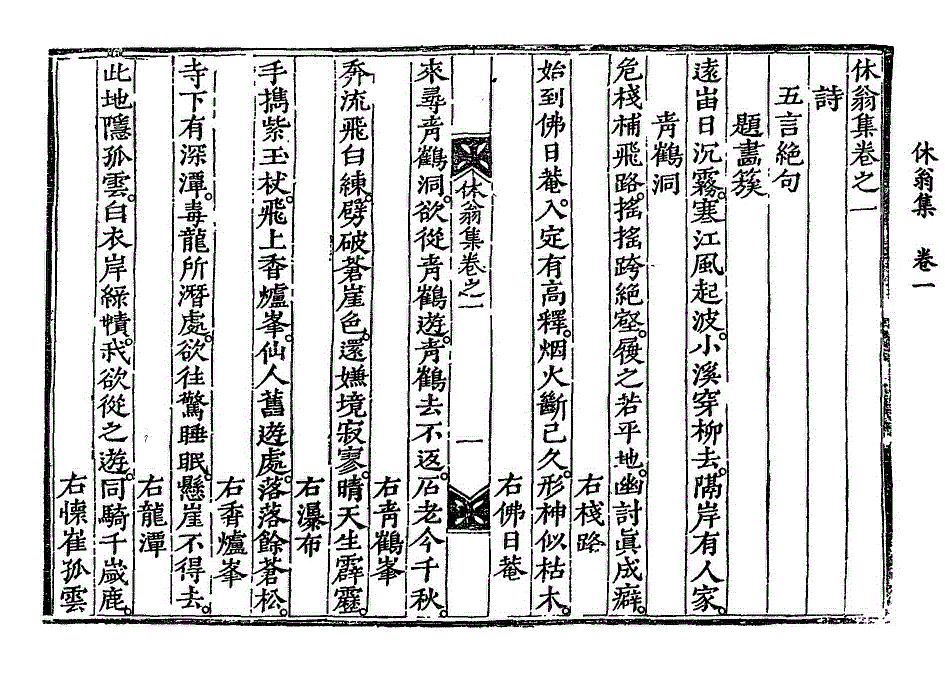 休翁集 卷一
休翁集卷之一
詩
五言絶句
題畵簇
遠峀日沉霧。寒江風起波。小溪穿柳去。隔岸有人家。
靑鶴洞
危棧補飛路。搖搖跨絶壑。履之若平地。幽討眞成癖。
右棧路
始到佛日菴。入定有高釋。烟火斷已久。形神似枯木。
右佛日菴
休翁集卷之一
一
來尋靑鶴洞。欲從靑鶴遊。靑鶴去不返。石老今千秋。
右靑鶴峯
奔流飛白練。劈破蒼崖色。還嫌境寂寥。晴天生霹靂。
右瀑布
手擕紫玉杖。飛上香爐峯。仙人舊遊處。落落餘蒼松。
右香爐峯
寺下有深潭。毒龍所潛處。欲往驚睡眠。懸崖不得去。
右龍潭
此地隱孤雲。白衣岸綠幘。我欲從之遊。同騎千歲鹿。
右懷崔孤雲